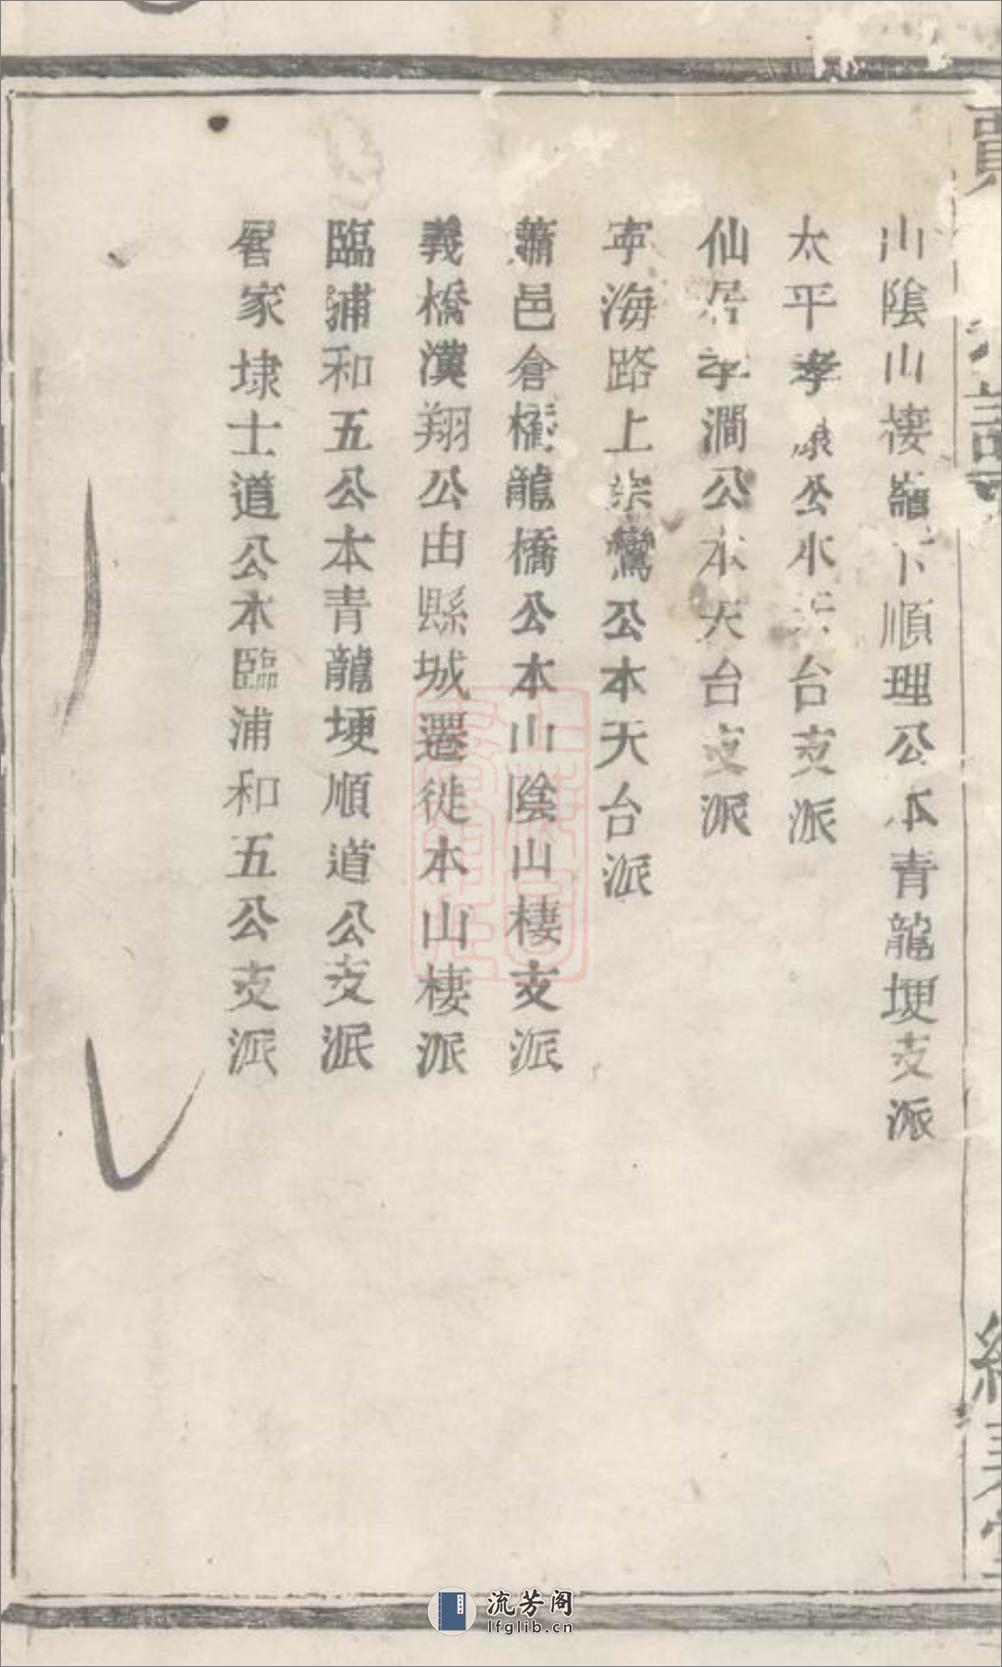 山陰山棲巃下順理公本青龍埂支派
太平孝康公本天台支派
仙居孝澗公本天台支派
寕海路上崇鸞公本天台派
蕭邑倉橋龍橋公本山陰山棲支派
義橋漢翔公由縣城遷徙本山棲派
臨浦和五公本青龍埂順道公支派
屠家埭士道公本臨浦和五公支派
流芳阁
lfglib.cn